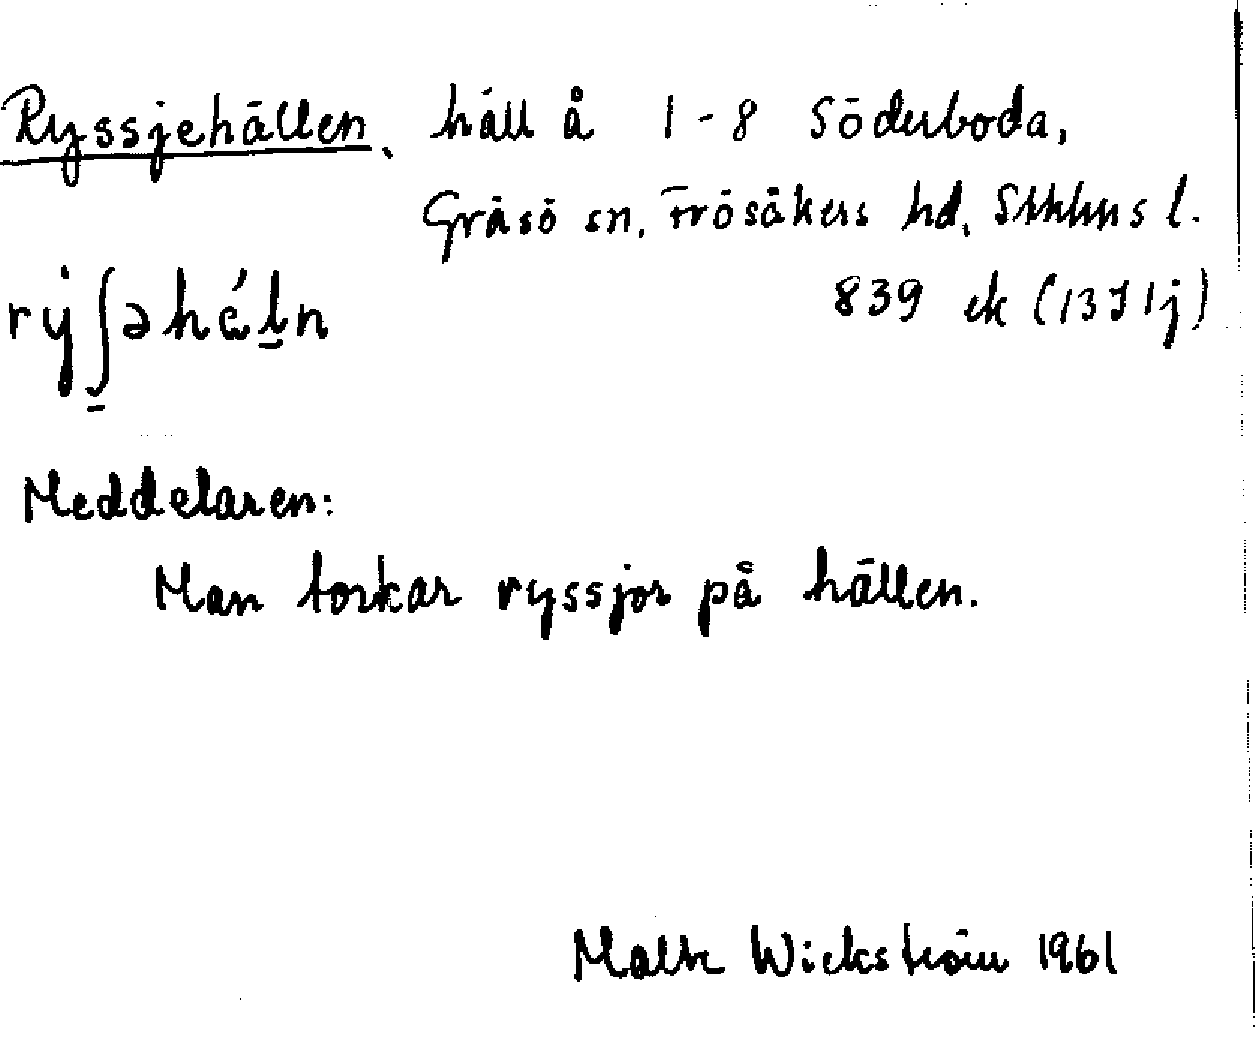 Ryssjehällen, häll å 1-8 Söderboda,
Gräsö sn, Frösåkers hd, Sthlms l.
839 ek (13I1j)
rẏʃəhǽln
Meddelaren:
Man torkar ryssjor på hällen.
Malte Wickström 1961